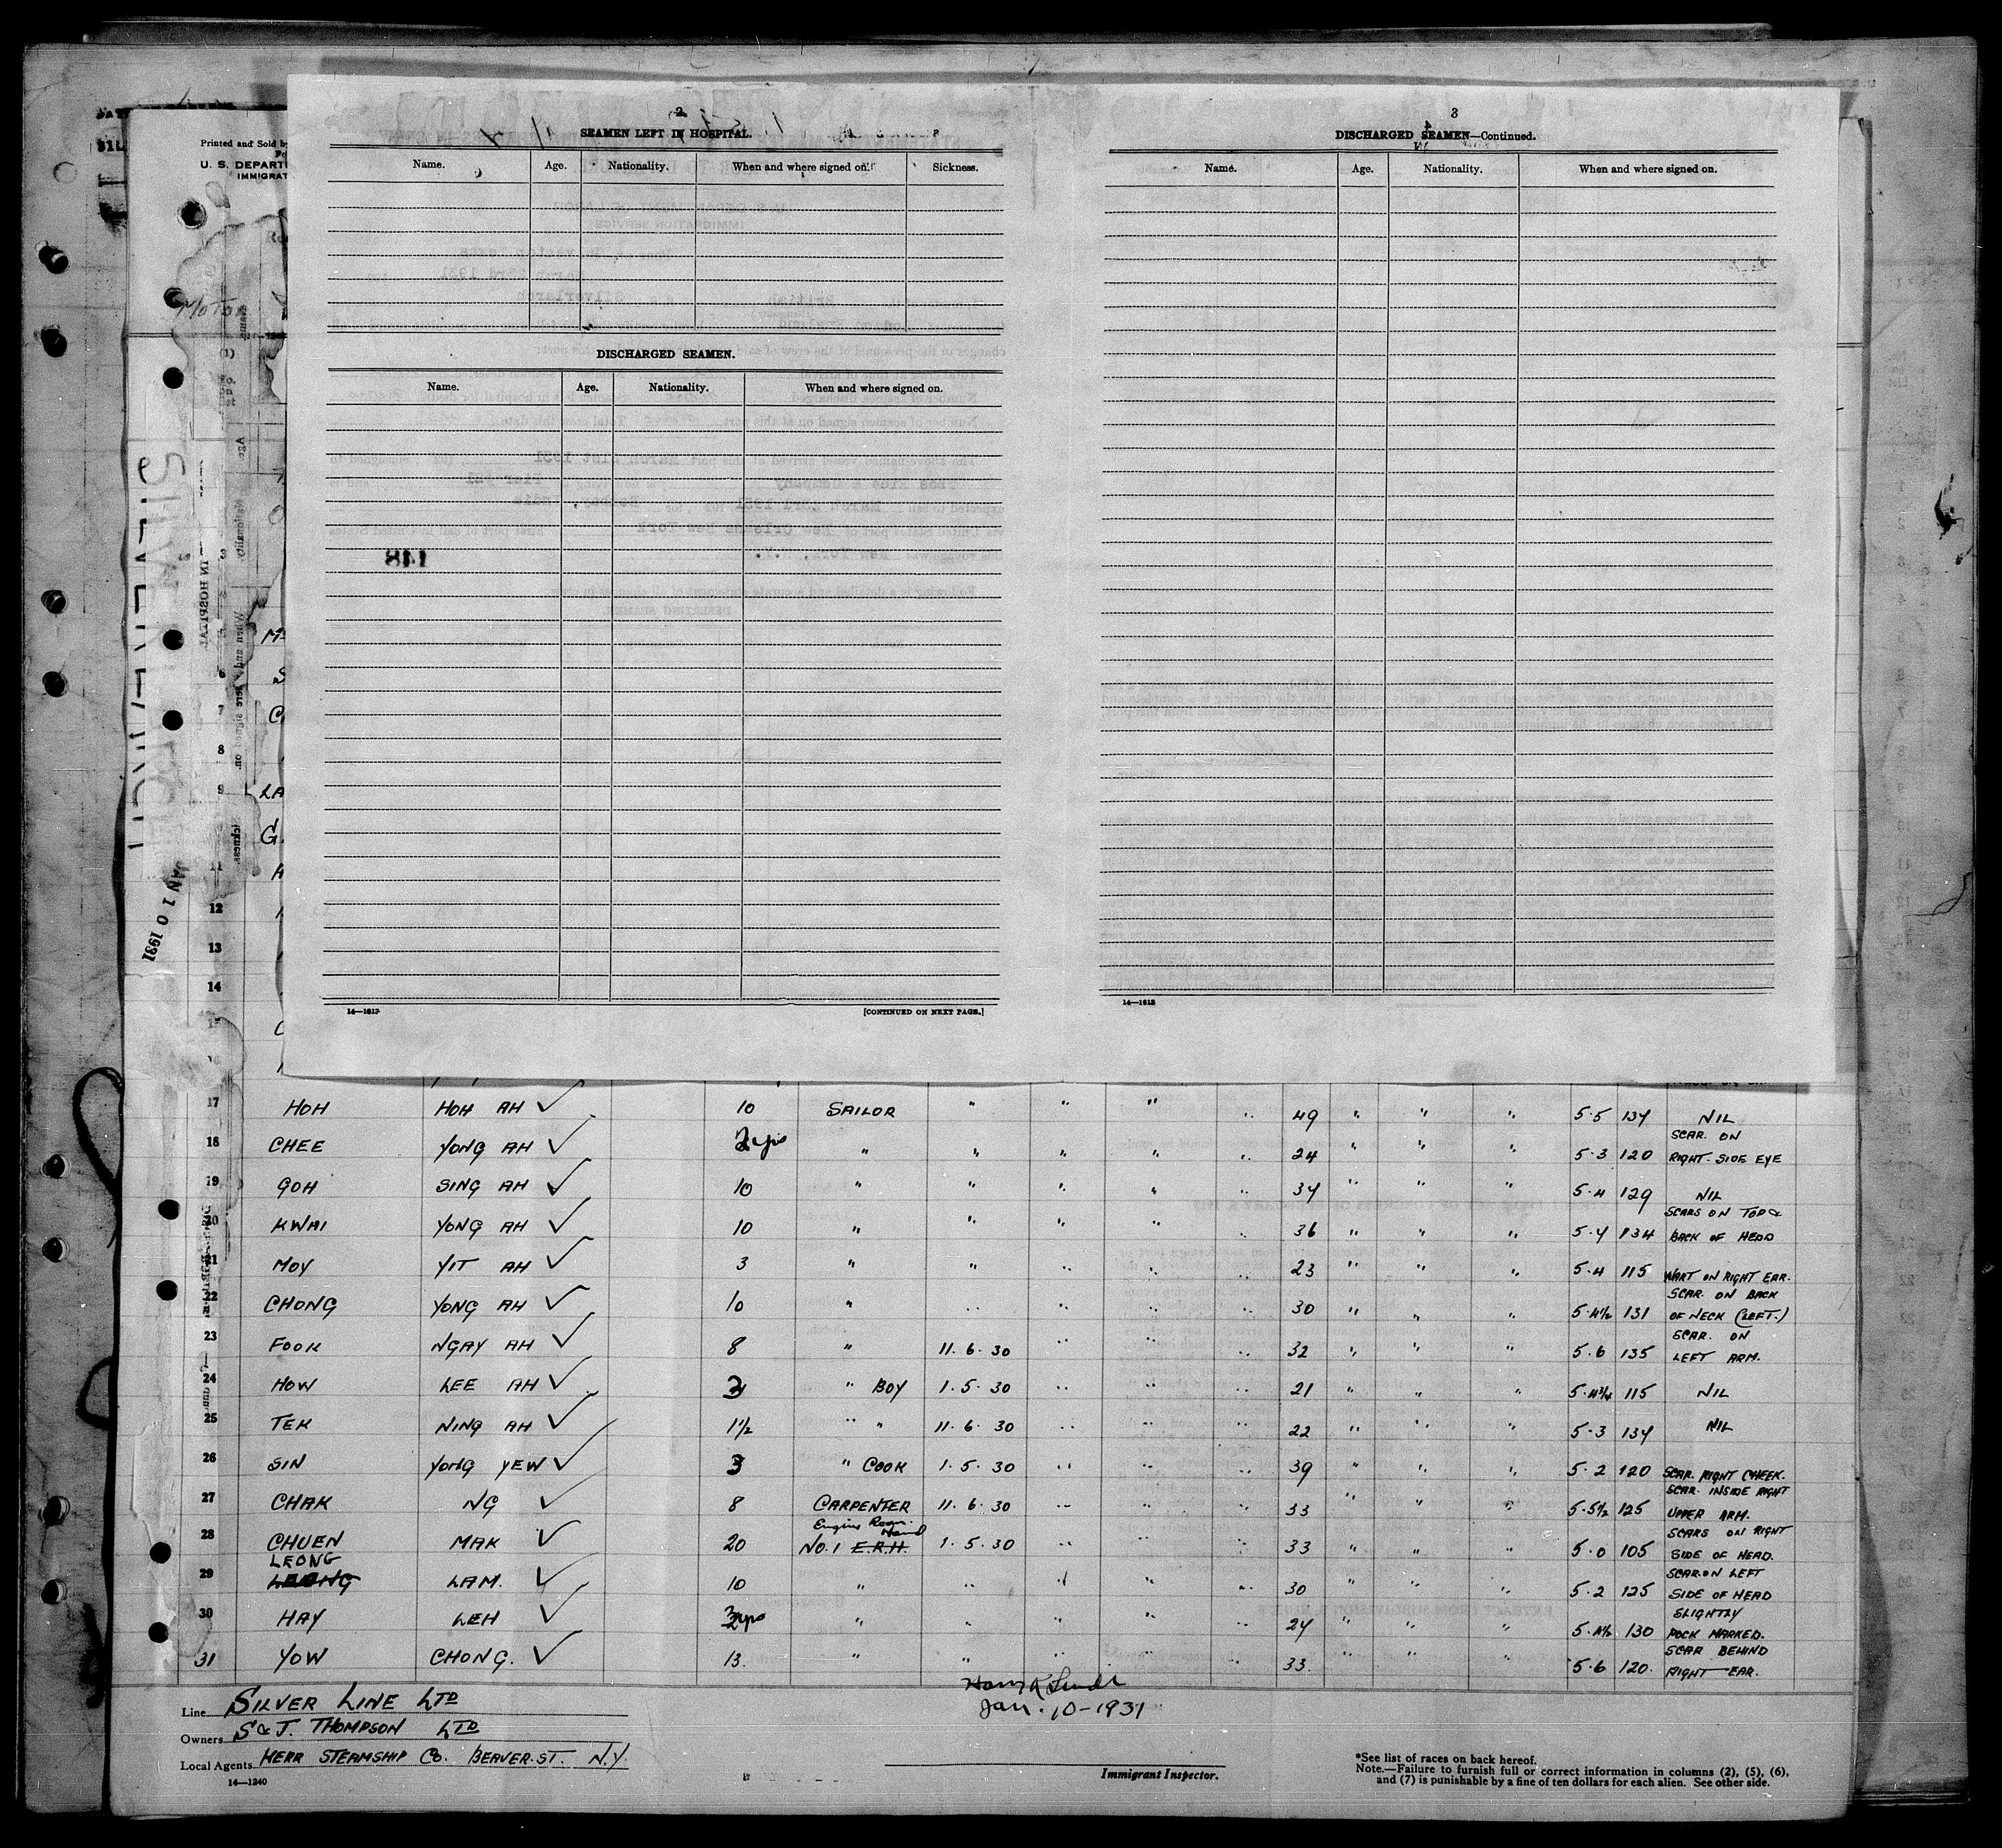 Printed and Sold by
U. S. DEPART
IMMIGRAT
2
SEAMEN LEFT IN HOSPITAL.
Name. Age. Nationality. When and where signed on. Sickness.
DISCHARGED SEAMEN.
Name. Age. Nationality. When and where signed on.
148
14—1612 [CONTINUED ON NEXT PAGE.]
3
DISCHARGED SEAMEN—Continued.
Name. Age. Nationality. When and where signed on.
14—1612
JAN 10 1931
IN HOSPITAL
7
8
9 LA
11
12
13
14
17 HOH HOH AH ✓ 10 SAILOR " " " " 49 " " " 5·5 134 NIL
18 CHEE YONG AH ✓ 2 yrs " " " " " 24 " " " 5·3 120 SCAR. ON RIGHT SIDE EYE
19 GOH SING AH ✓ 10 " " " " " 34 " " " 5·4 129 NIL
20 KWAI YONG AH ✓ 10 " " " " " 36 " " " 5·4 134 SCARS ON TOP & BACK OF HEAD
21 MOY YIT AH ✓ 3 " " " " " 23 " " " 5·4 115 WART ON RIGHT EAR.
22 CHONG YONG AH ✓ 10 " " " " " 30 " " " 5·4½ 131 SCAR. ON BACK OF NECK (LEFT.)
23 FOOK NGAY AH ✓ 8 " 11. 6. 30 " " " 32 " " " 5·6 135 SCAR. ON LEFT ARM.
24 HOW LEE AH ✓ 3 " BOY 1. 5. 30 " " " 21 " " " 5·4¾ 115 NIL
25 TEK NING AH ✓ 1½ " " 11. 6. 30 " " " 22 " " " 5·3 134 NIL
26 SIN YONG YEW ✓ 3 " COOK 1. 5. 30 " " " 39 " " " 5·2 120 SCAR. RIGHT CHEEK.
27 CHAK NG ✓ 8 CARPENTER 11. 6. 30 " " " 33 " " " 5·5½ 125 SCAR. INSIDE RIGHT UPPER ARM.
28 CHUEN MAK ✓ 20 Engine Room Hand NO. 1 E.R.H. 1. 5. 30 " " " 33 " " " 5·0 105 SCARS ON RIGHT SIDE OF HEAD.
29 LEONG LAM. ✓ 10 " " " " " 30 " " " 5·2 125 SCAR ON LEFT SIDE OF HEAD
30 HAY LEH ✓ " " " " " 24 " " " 130 SLIGHTLY POCK MARKED.
31 YOW CHONG. ✓ 13. " " " " " 33. " " " 5·6 120. SCAR BEHIND RIGHT EAR.
Jan. 10-1931
Line SILVER LINE LTD
Owners S & J. THOMPSON LTD
Local Agents KERR STEAMSHIP CO. BEAVER. ST. N.Y.
14—1240
Immigrant Inspector.
*See list of races on back hereof.
Note.—Failure to furnish full or correct information in columns (2), (5), (6),
and (7) is punishable by a fine of ten dollars for each alien. See other side.